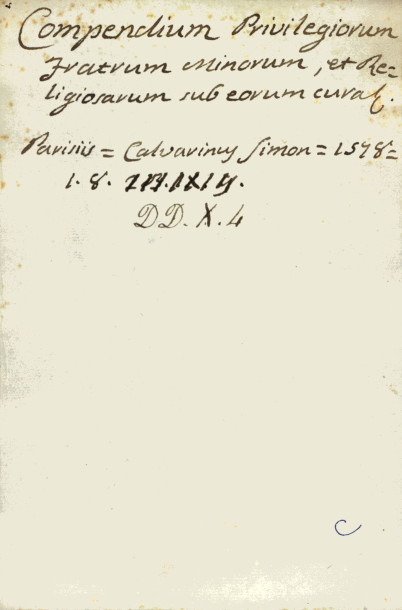 Compendium Privilegiorum
Fratrum Minorum, et Re-
ligiosarum sub eorum cura
Parisiis = Calvarinus Simon = 1578 =
1. 8.
DD. X. 4
C